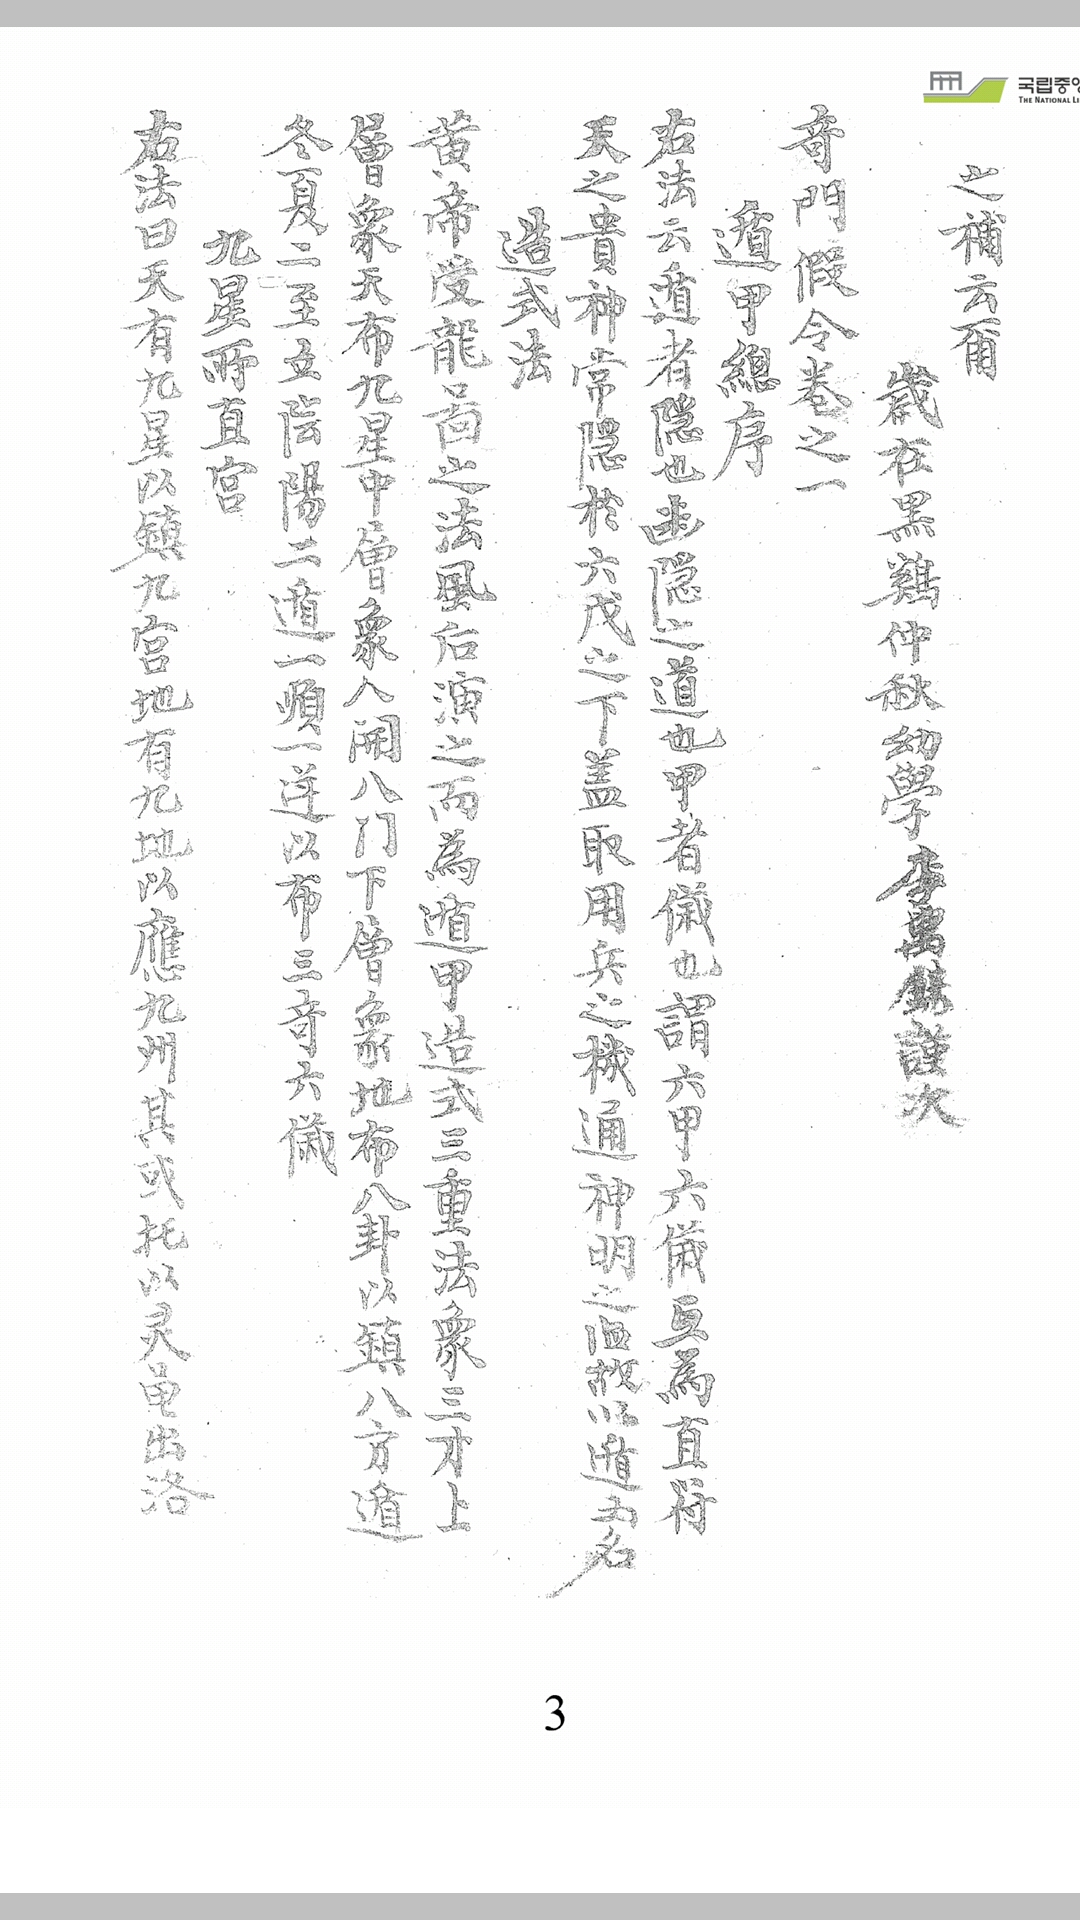 국립중앙
THE NATIONAL LI
之補云爾
歲在黑鷄仲秋幼學李萬謹次
奇門假令卷之一
遁甲總序
右法云遁者隠也幽隠之道也甲者儀也謂六甲六儀互為直符
天之貴神常隠於六戊之下盖取用兵之機通神明之故以遁為名
造式法
黃帝受龍啚之法風后演之而為遁甲造式三重法象三才上
層象天布九星中層象人開八门下層象地布八卦以鎮八方遁
冬夏二至立陰陽二遁一順一逆以布三奇六儀
九星所直宮
右法曰天有九星以鎮九宮地有九地以應九州其或托以灵龟出洛
3